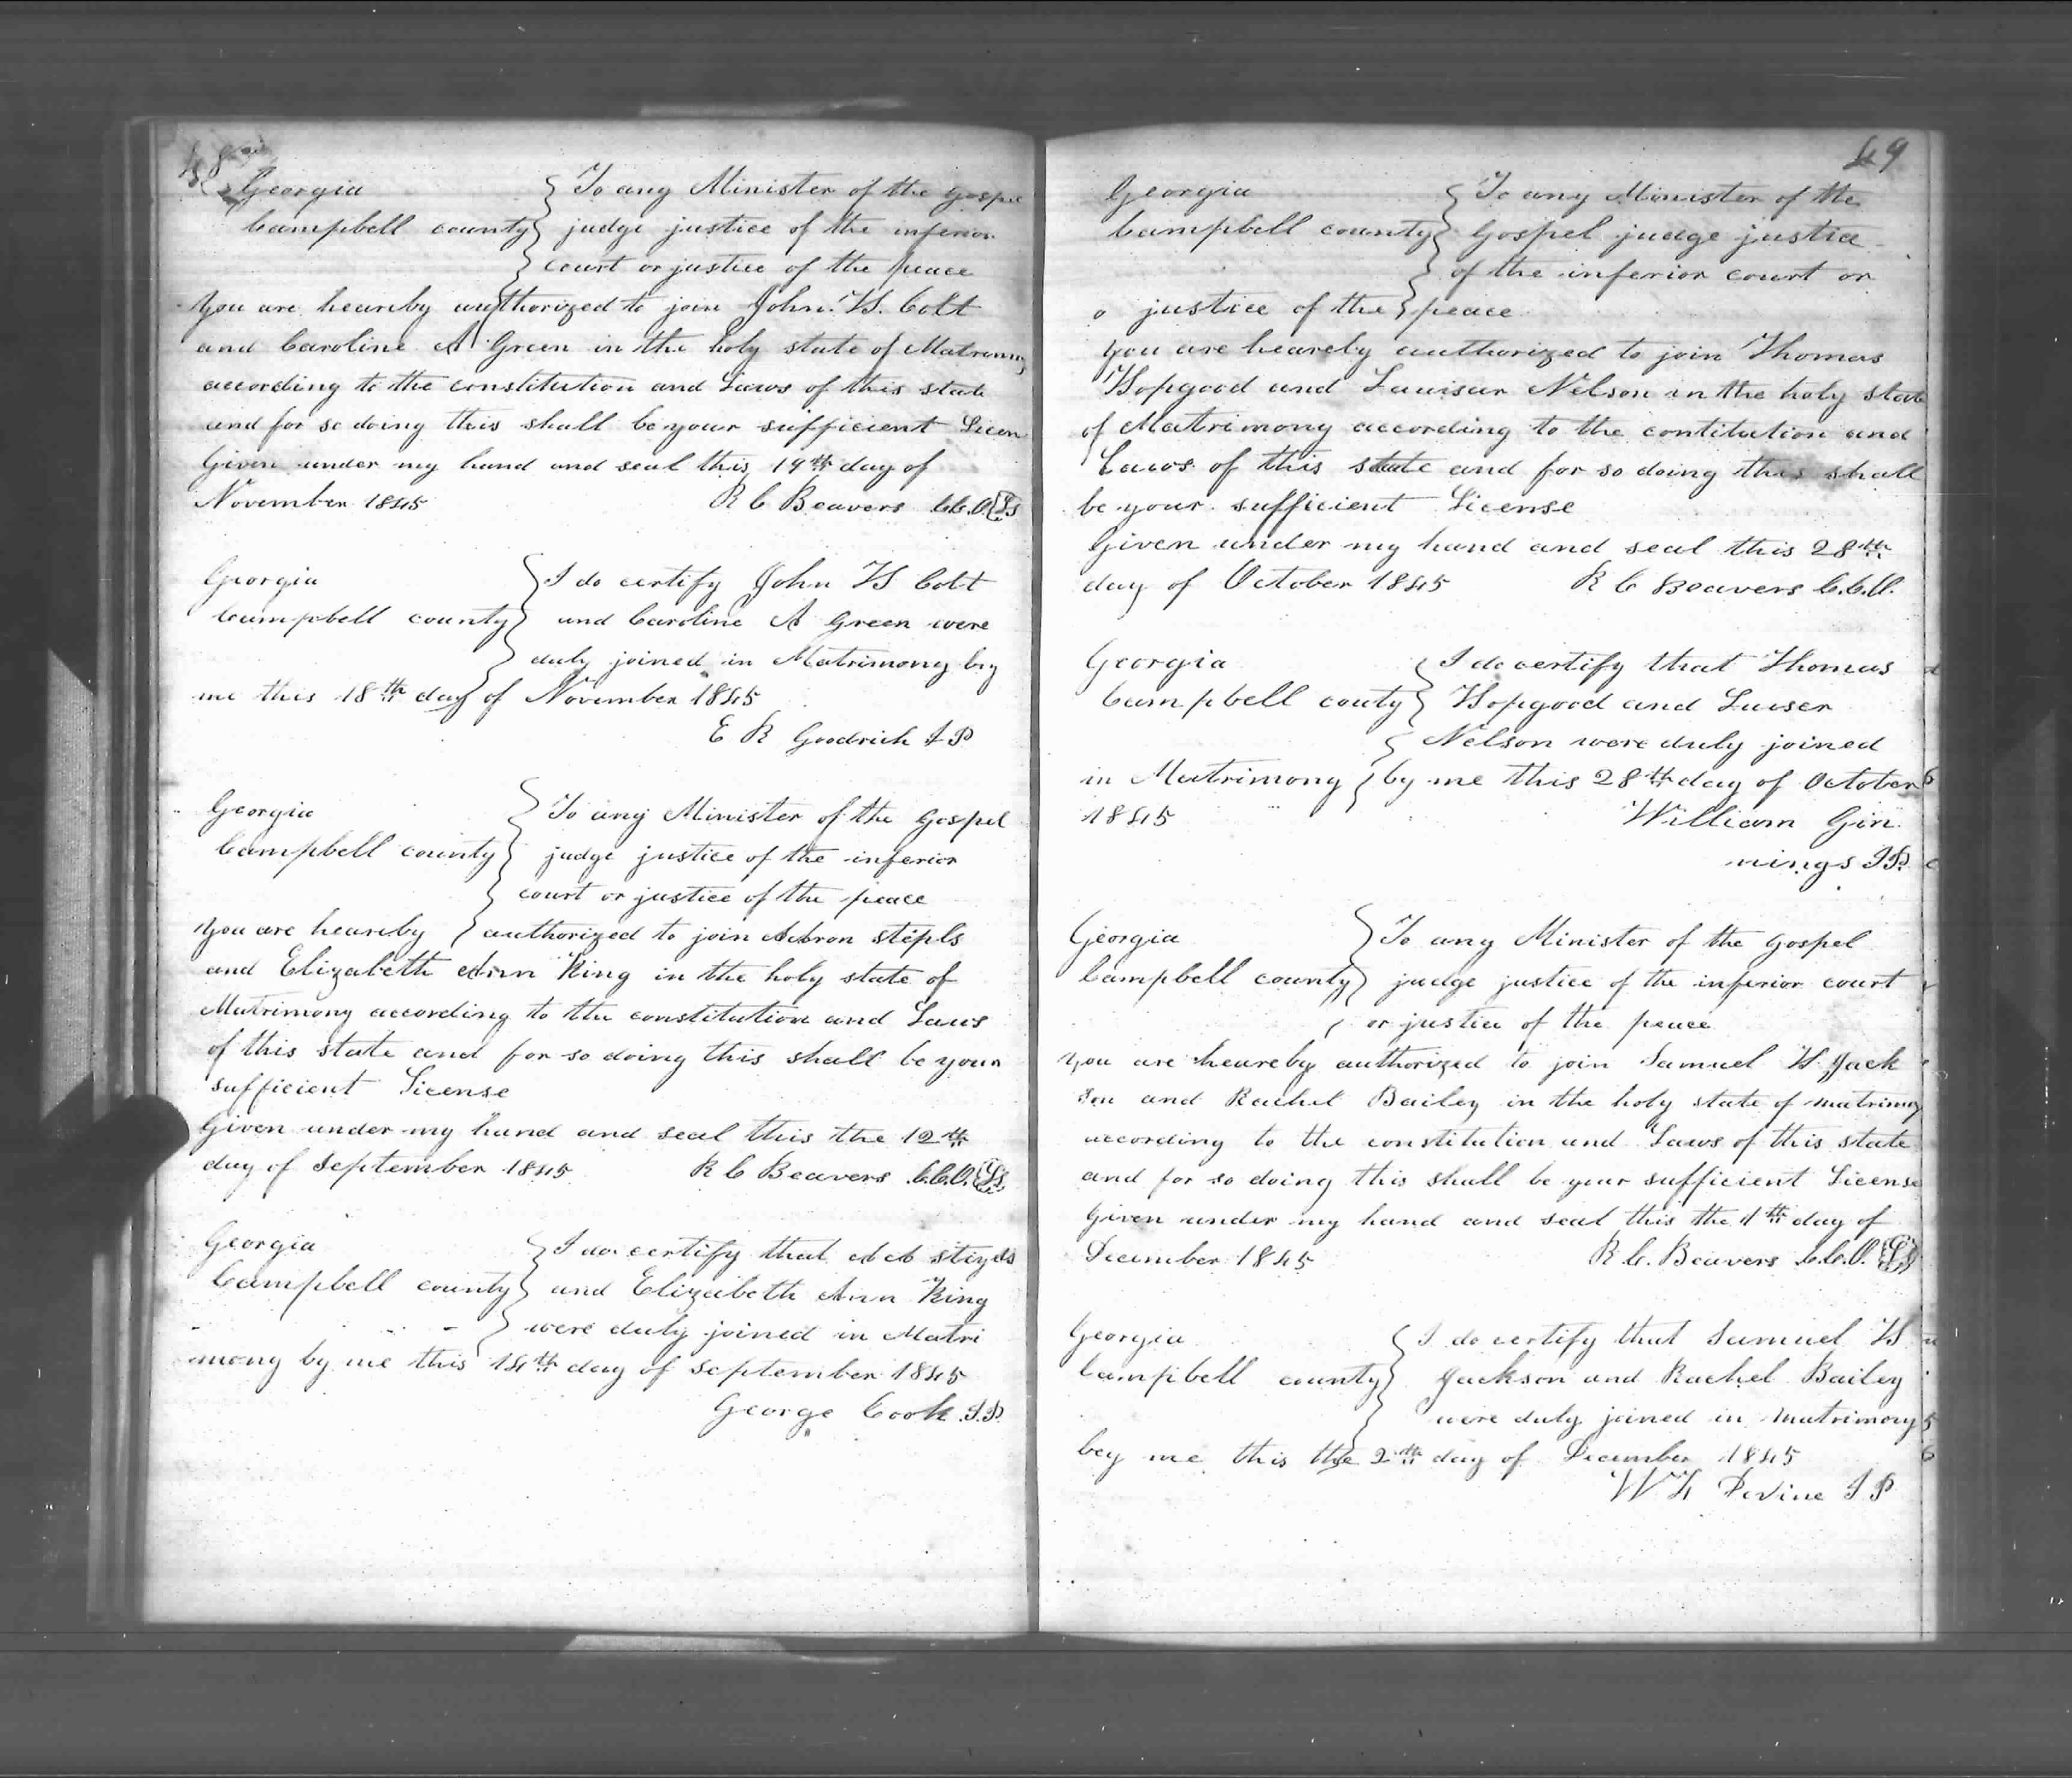 48
Georgia } To any Minister of the Gospel
Campbell county } judge justice of the inferior
} court or justice of the peace
You are heareby authorized to join John. H. Colt
and Caroline A Green in the holy state of Matrimony
according to the constitution and Laws of this state
and for so doing this shall be your sufficient Licen
Given under my hand and seal this 19th day of
November 1845 R C Beavers C.C.O. Ls
Georgia } I do certify John H Colt
Campbell county } and Caroline A Green were
} duly joined in Matrimony by
me this 18th day of November 1845
E R Goodrich J P
Georgia } To any Minister of the Gospel
Campbell county } judge justice of the inferior
} court or justice of the peace
You are heareby } authorized to join Aabron stepls
and Elizabeth Ann King in the holy state of
Matrimony according to the constitution and Laws
of this state and for so doing this shall be your
sufficient License
Given under my hand and seal this the 12th
day of September 1845 R C Beavers C.C.O. Ls
Georgia } I do certify that
Campbell county } and Elizabeth Ann King
} were duly joined in Matri
mony by me this 14th day of september 1845
George Cook J.P.
49
Georgia } To any Minister of the
Campbell county } Gospel judge justice
} of the inferior court or
justice of the } peace
You are heareby authorized to join Thomas
Hopgood and Lauisar Nelson in the holy state
of Matrimony according to the contitution and
Laws of this state and for so doing this shall
be your sufficient License
Given under my hand and seal this 28th
day of October 1845 R C Beavers C.C.O.
Georgia } I do certify that Thomas
Campbell couty } Hopgood and Luiser
} Nelson were duly joined
in Matrimony } by me this 28th day of October
1845 William Gin
nings J.P.
Georgia } To any Minister of the Gospel
Campbell county } judge justice of the inferior court
} or justice of the peace
You are heareby authorized to join Samuel H Jack
son and Rachel Bailey in the holy state of matrimony
according to the constitution and Laws of this state
and for so doing this shall be your sufficient License
Given under my hand and seal this the 1th day of
December 1845 R C. Beavers C.C.O. Ls
Georgia } I do certify that Samuel H
Campbell county } Jackson and Rachel Bailey
} were duly joined in matrimony
bey me this the 2th day of December 1845
W H Devine J P